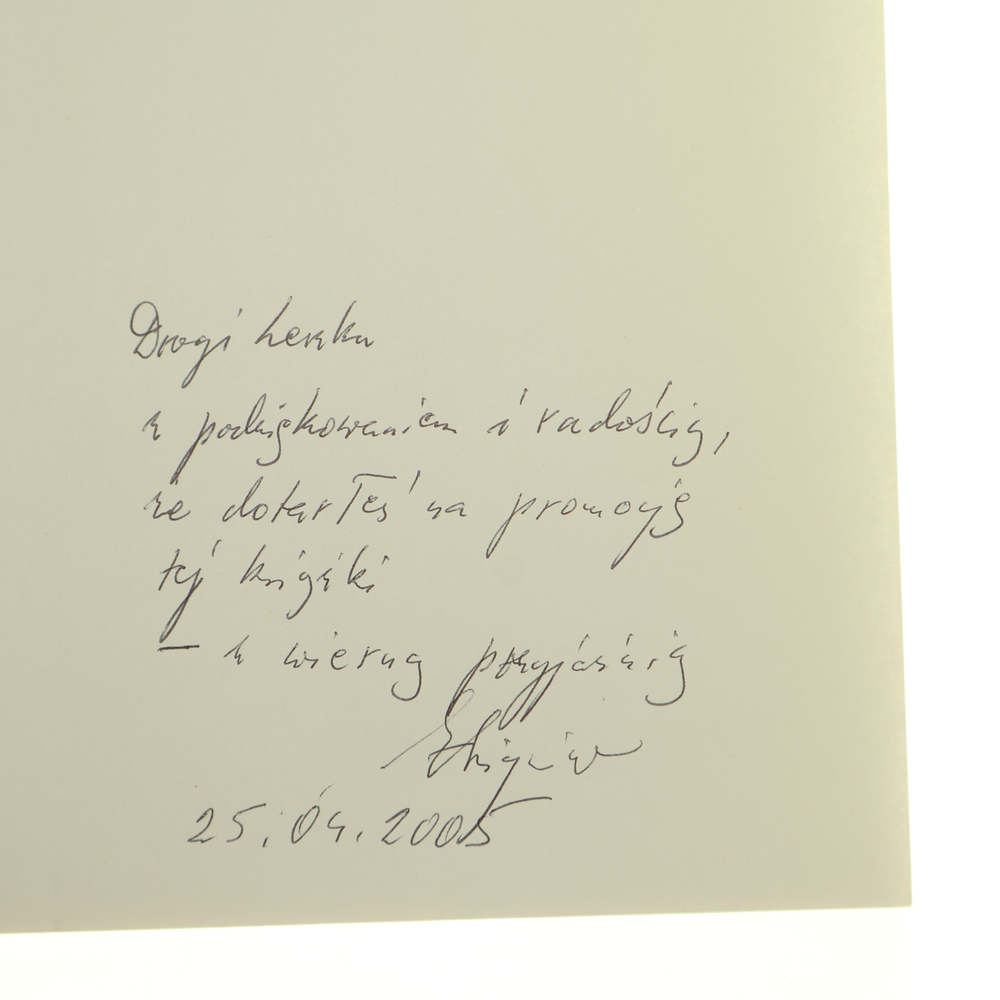 Drogi Leszku
z podziękowaniem i radością,
że dotarłeś na promocję
tej książki
– z wierną przyjaźnią
Zbigniew
25.04.2005